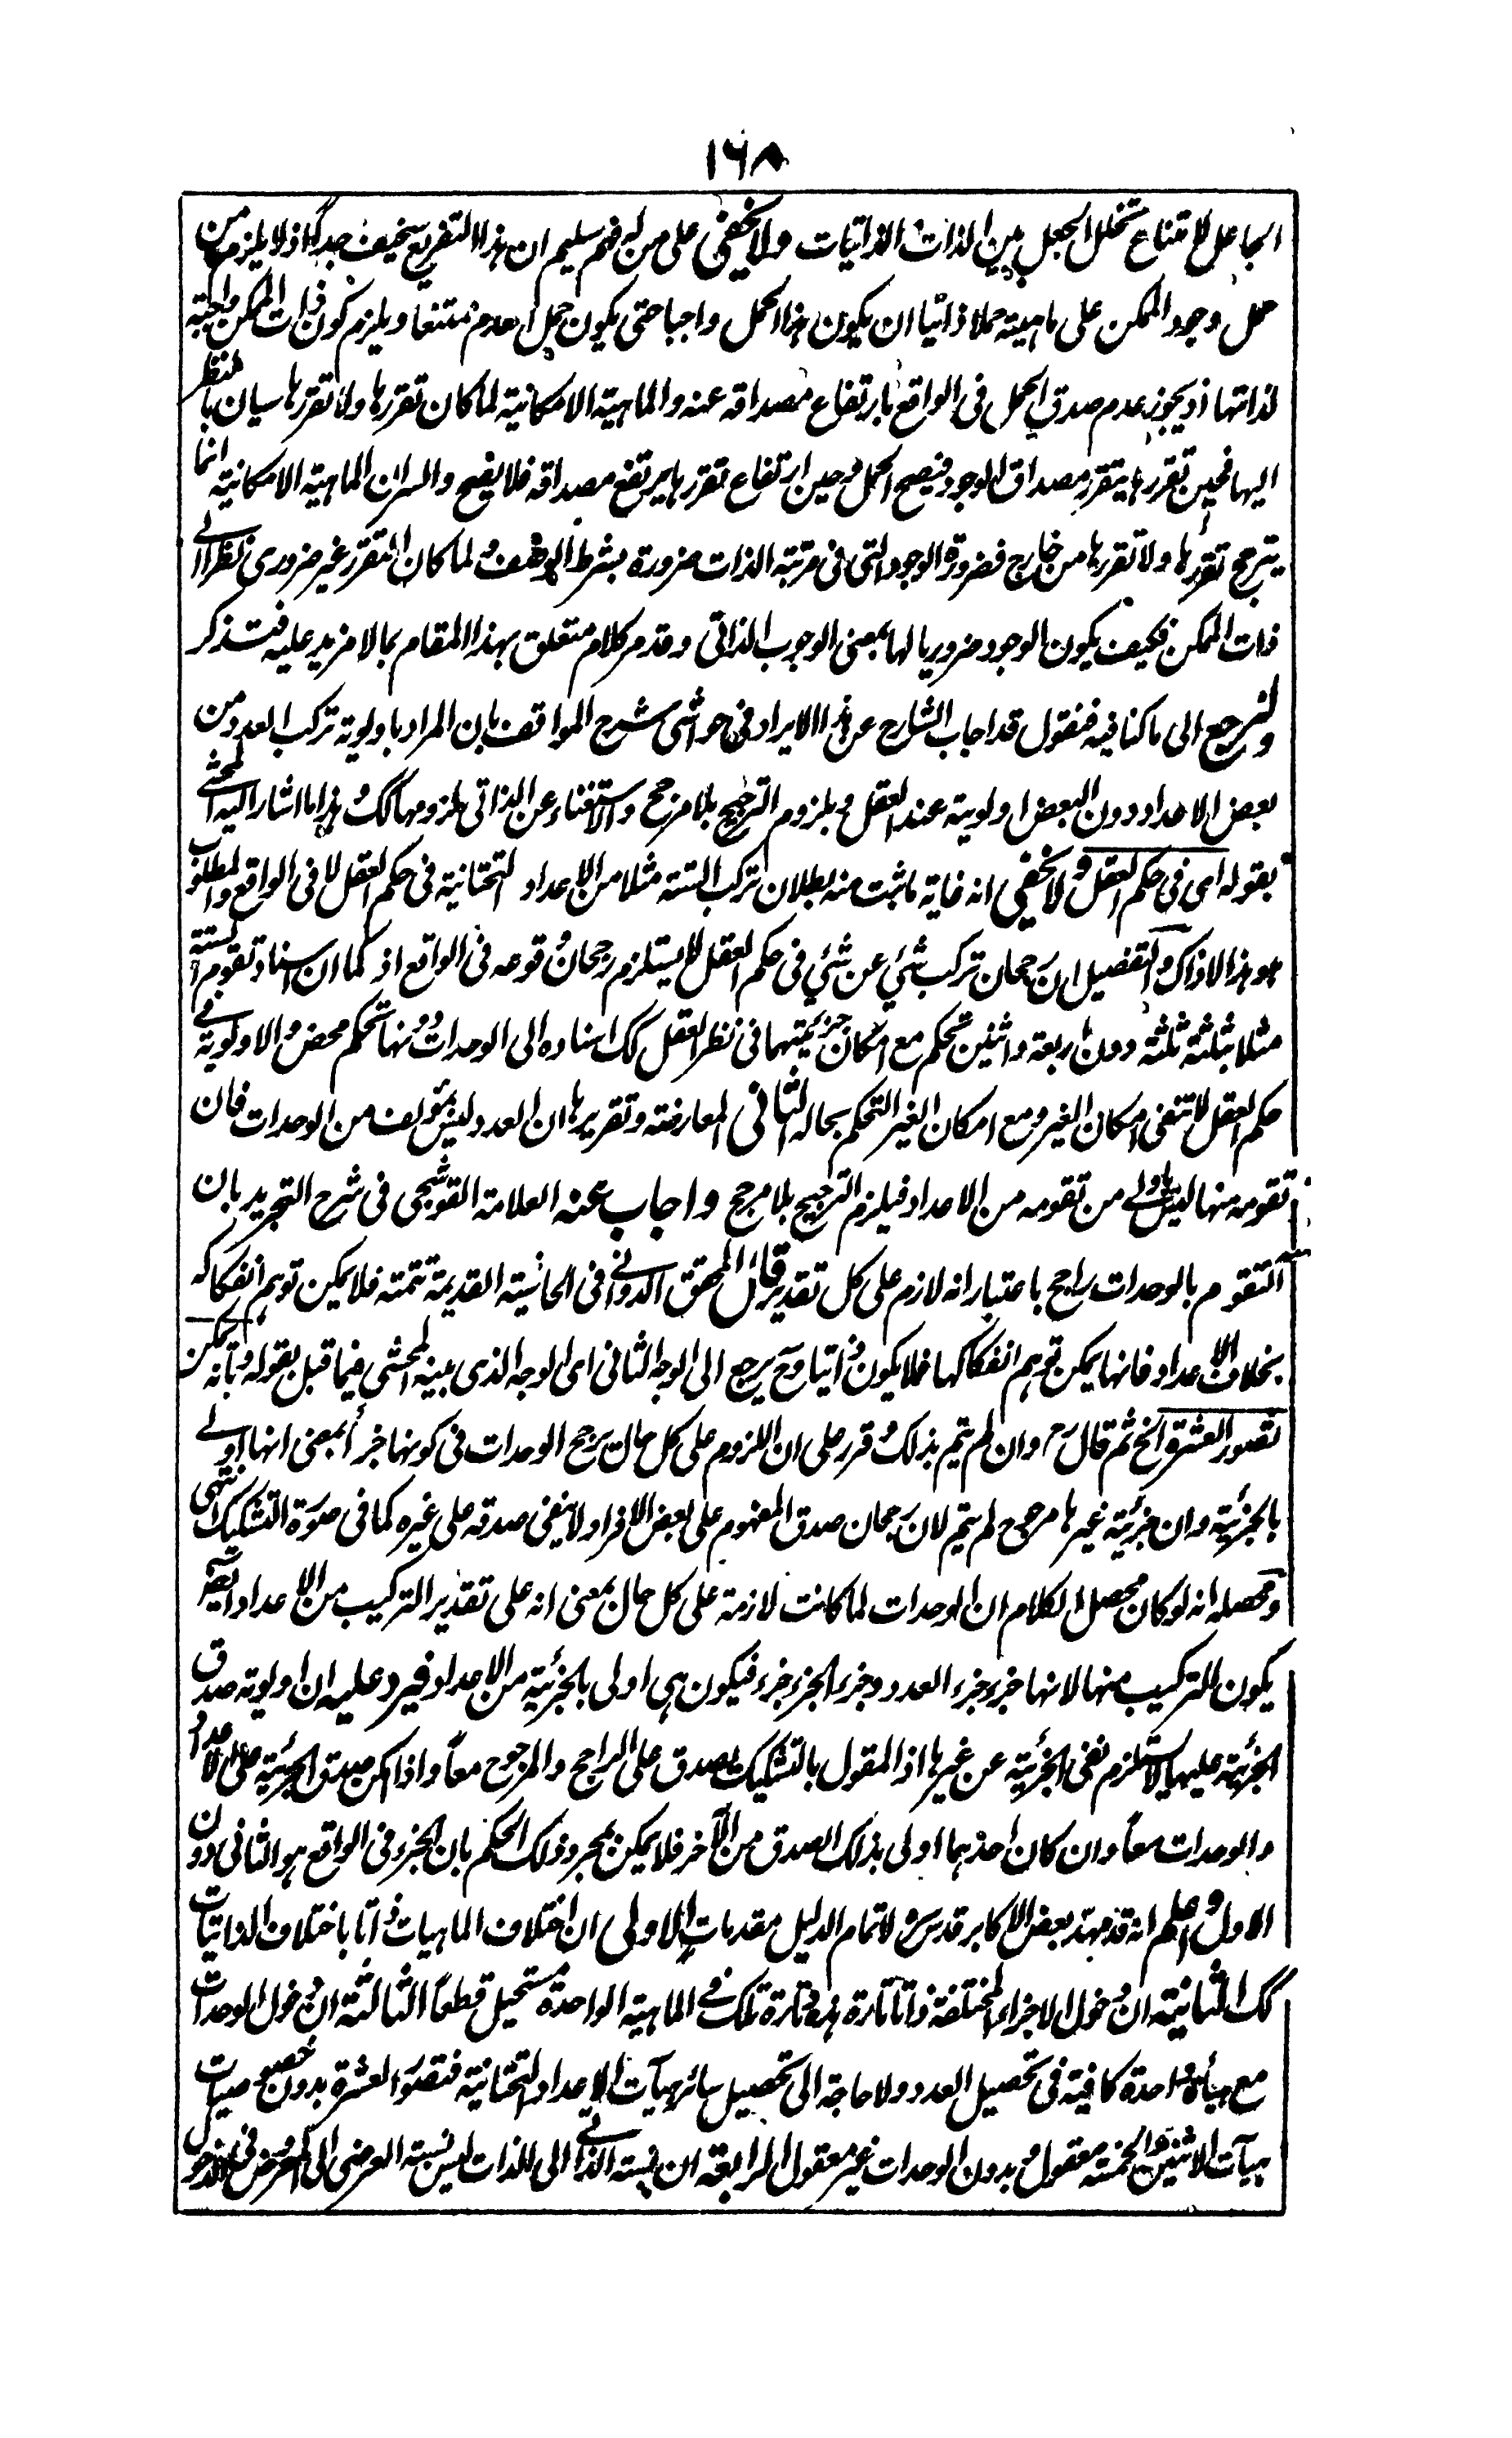 ١٦٨
الجاعل لامتناع تخلل الجعل بين الذات والذاتيات ولا يخفى على من له فهم سليم ان هذا التفريع سخيف جدا اذ لا يلزم من
حمل وجود الممكن على ماهيته حملا ذاتيا ان يكون هذا الحمل واجبا حتى يكون حمل العدم ممتنعا ويلزم كون ذات الممكن واجبة
لذاتها اذ يجوز عدم صدق الحمل فى الواقع بارتفاع مصداقه عنه والماهية الامكانية لما كان تقررها ولا تقررها سيان بالنظر
اليها فحين تقررها يتقرر مصداق الوجود فيصح الحمل وحين ارتفاع تقررها يرتفع مصداقه فلا يصح والسر ان الماهية الامكانية انما
يترجح تقررها ولا تقررها من خارج فضرورة الوجود التى فى مرتبة الذات ضرورة بشرط الوصف ولما كان التقرر غير ضرورى نظرا الى
ذات الممكن فكيف يكون الوجود ضروريا لها بمعنى الوجوب الذاتى وقد مر كلام متعلق بهذا المقام بما لا مزيد عليه فتذكر
ولنرجع الى ما كنا فيه فنقول قد اجاب الشارح عن هذا الايراد فى حواشى شرح المواقف بان المراد باولوية تركب العدد من
بعض الاعداد دون البعض اولوية عند العقل وبلزوم الترجيح بلا مرجح والاستغناء عن الذاتى لزومهما كك وهذا ما اشار اليه المحشى
بقوله اى فى حكم العقل ولا يخفى انه غاية ما ثبت منه بطلان تركب الستة مثلا من الاعداد التحتانية فى حكم العقل لا فى الواقع والمطلوب
هو هذا لا ذاك والتفصيل ان رجحان تركب شئ عن شئ فى حكم العقل لا يستلزم رجحان وقوعه فى الواقع اذ كما ان اسناد تقوم الستة
مثلا بثلثة ثلثة دون اربعة واثنين تحكم مع امكان جزئيتهما فى نظر العقل كك اسناده الى الوحدات دونها تحكم محض والاولوية فى
حكم العقل لا تنفى امكان الغير ومع امكان الغير التحكم بحاله الثانى المعارضة وتقريرها ان العدد ليس بمؤلف من الوحدات فان
تقومه منها ليس باولى من تقومه من الاعداد فيلزم الترجيح بلا مرجح واجاب عنه العلامة القوشجى فى شرح التجريد بان
التقوم بالوحدات راجح باعتبار انه لازم على كل تقدير قال المحقق الدوانى فى الحاشية القديمة تتمته فلا يمكن توهم انفكاكه
بخلاف الاعداد فانها يمكن توهم انفكاكها فلا يكون ذاتيا وح يرجع الى الوجه الثانى اى الوجه الذى بينه المحشى فيما قبل بقوله وبانه يمكن
تصور العشرة الخ ثم قال رح وان لم يتم بذلك وقرر على ان اللزوم على كل حال يرجح الوحدات فى كونها جزأ بمعنى انها اولى
بالجزئية وان جزئية غيرها مرجوح لم يتم لان رجحان صدق المفهوم على بعض الافراد لا ينفى صدقه على غيره كما فى صورة التشكيك انتهى
ومحصله انه لو كان محصل الكلام ان الوحدات لما كانت لازمة على كل حال بمعنى انه على تقدير التركيب من الاعداد ايضا
يكون التركيب منها لانها جزء جزء العدد وجزء الجزء جزء فيكون هى اولى بالجزئية من الاعداد فيرد عليه ان اولوية صدق
الجزئية عليها لا يستلزم نفى الجزئية عن غيرها اذ المقول بالتشكيك يصدق على الراجح والمرجوح معا واذا امكن صدق الجزئية على الاعداد
والوحدات معا وان كان احدهما اولى بذلك الصدق من الآخر فلا يمكن بمجرد ذلك الحكم بان الجزء فى الواقع هو الثانى دون
الاول واعلم انه قد مهد بعض الاكابر قدس سره لاتمام الدليل مقدمات الاولى ان اختلاف الماهيات ذاتا باختلاف الذاتيات
كك الثانية ان دخول الاجزاء المختلفة ذاتا تارة هذه وتارة تلك فى الماهية الواحدة مستحيل قطعا الثالثة ان دخول الوحدات
مع هيأة واحدة كافية فى تحصيل العدد ولا حاجة الى تحصيل سائر هيآت الاعداد التحتانية فتصور العشرة بدون خصوصيات
هيآت الاثنين والخمسة معقول وبدون الوحدات غير معقول الرابعة ان نسبة الذاتى الى الذات ليس نسبة العرضى الى المعروض فى الدخول